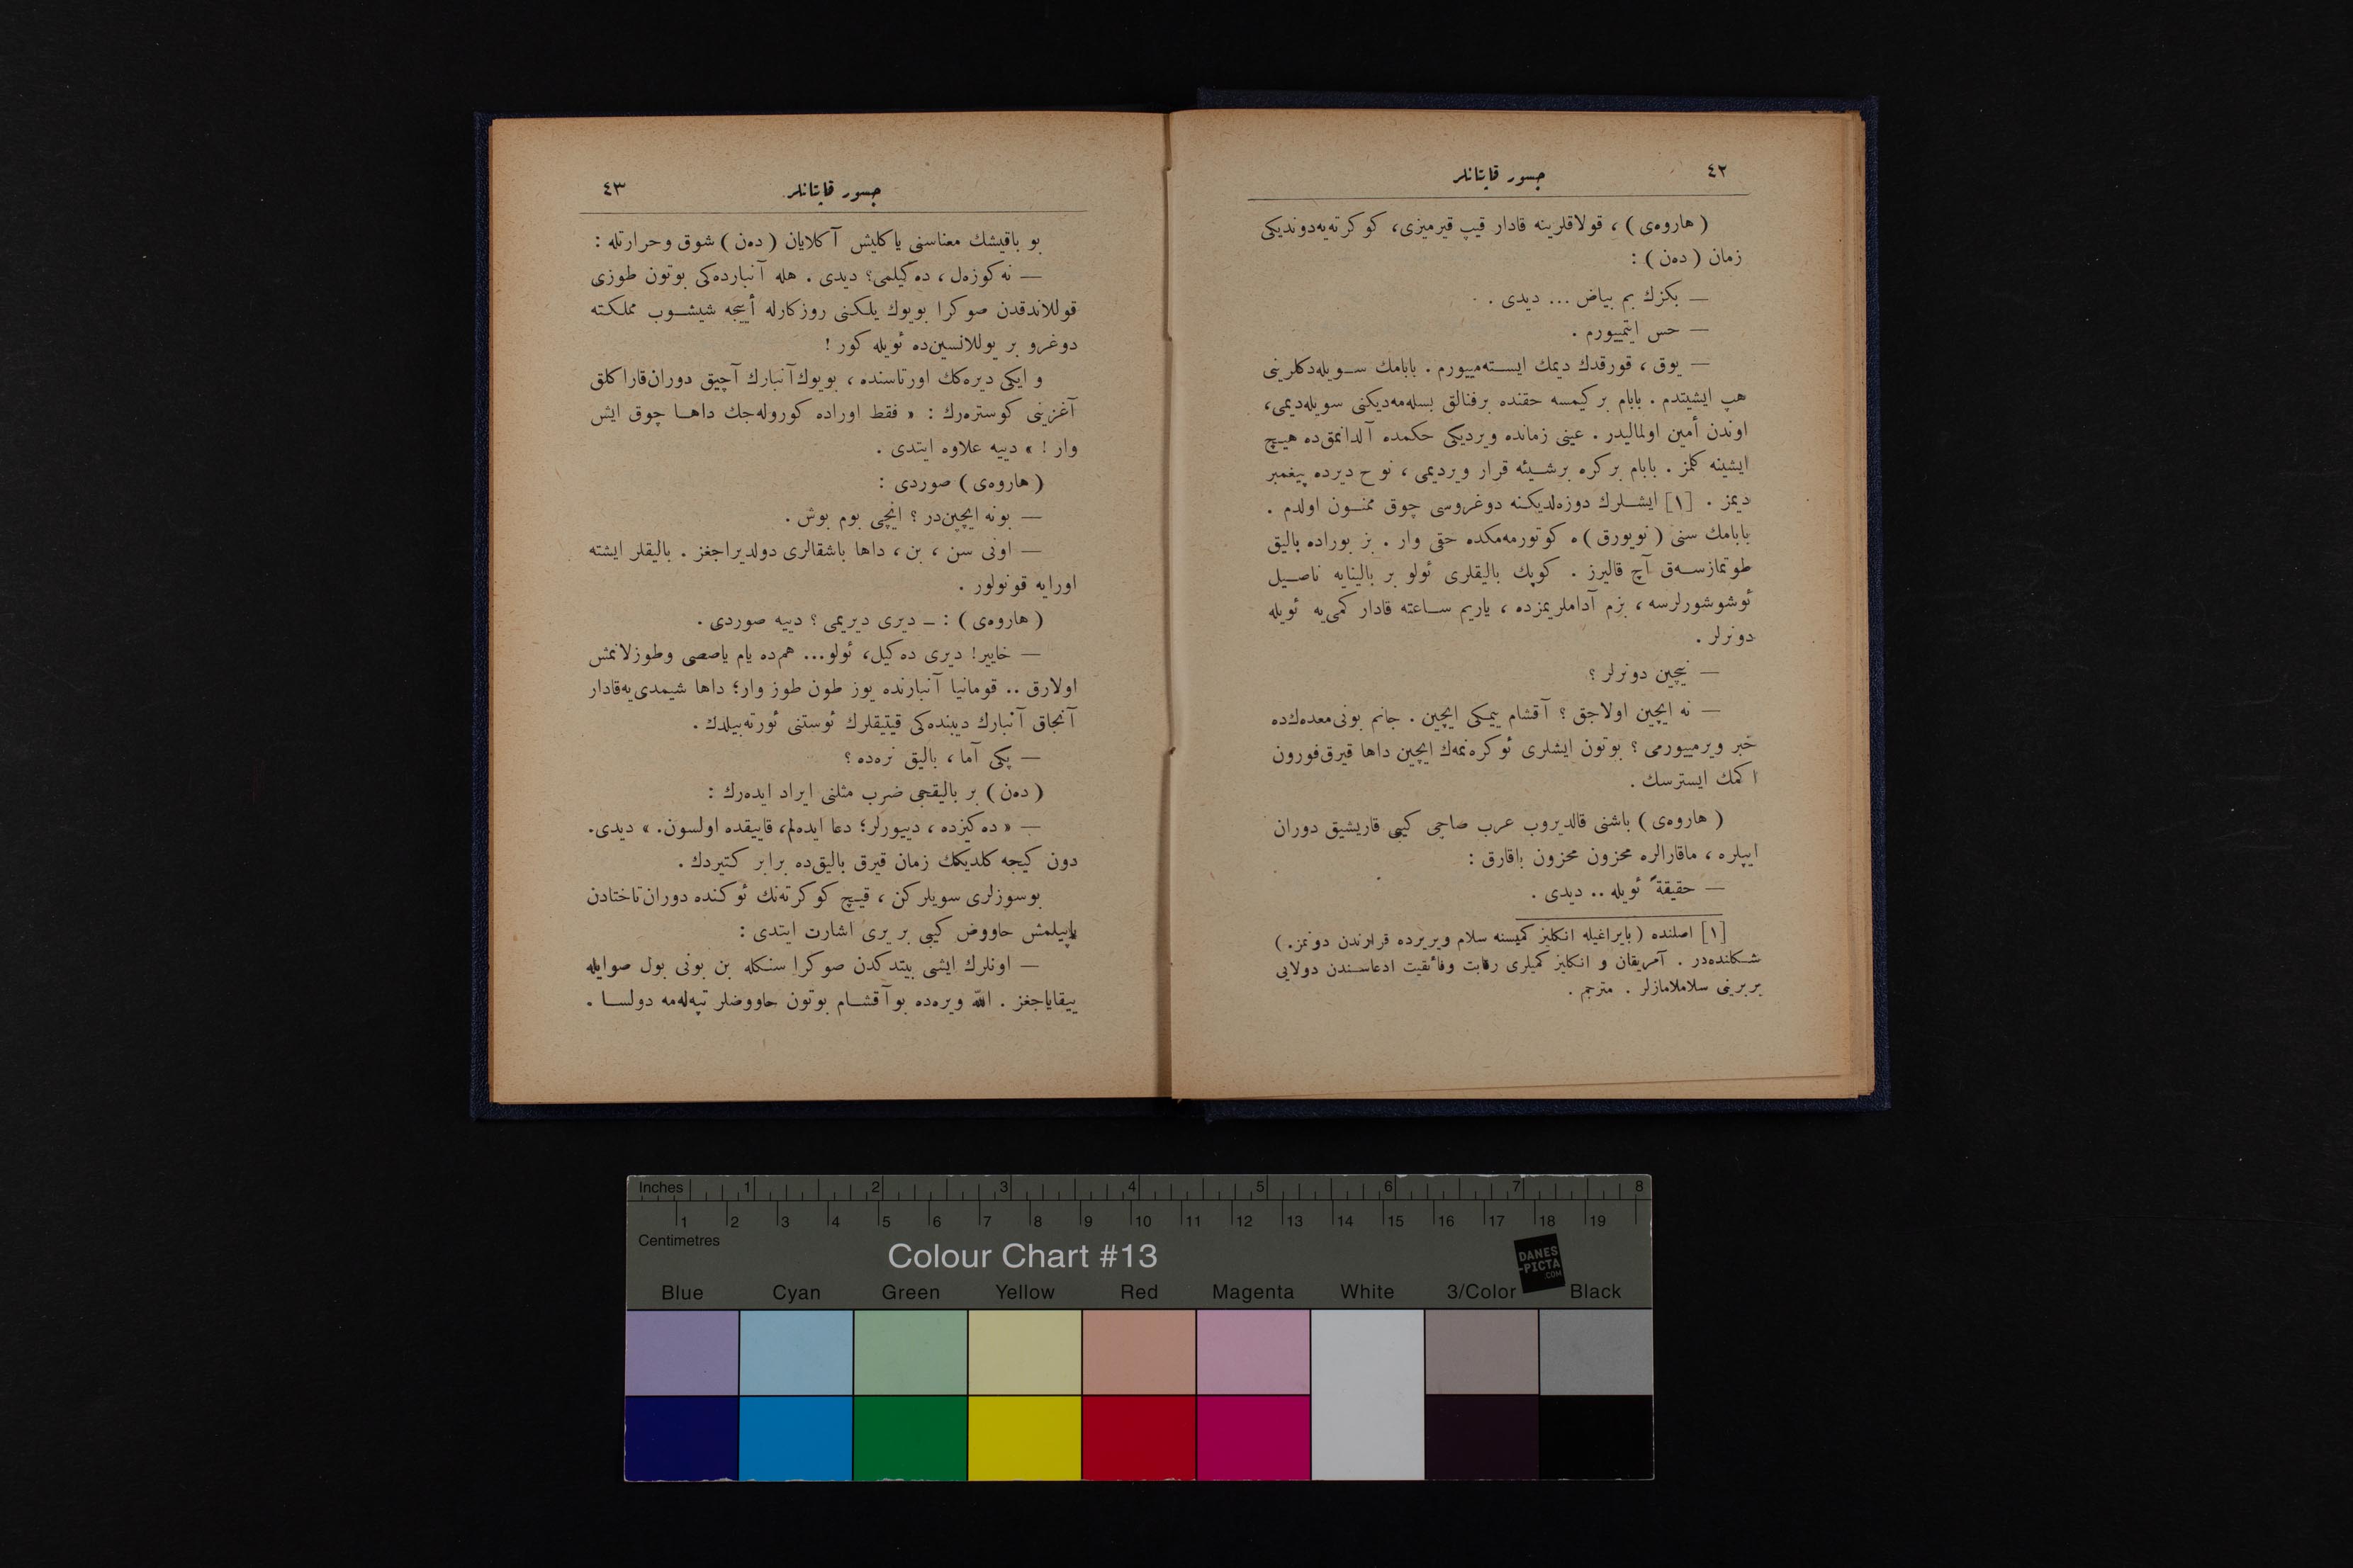 ٤٢
جسور قاپتانلر
( هاروه‌ی ) ، قولاقلرینه قادار قیپ قیرمیزی، کوکرته‌یه‌دوندیکی
زمان ( ده‌ن ) :
— بکزك بم بیاض ... دیدی .
— حس ایتمییورم .
— یوق ، قورقدك دیمك ایسته‌مییورم . بابامك سویله‌دکلرینی
هپ ایشیتدم . بابام بر کیمسه حقنده برفنالق بسله‌مه‌دیکنی سویله‌دیمی،
اوندن أمین اولمالیدر . عینی زمانده ویردیکی حکمده آلدانمق‌ده هیچ
ایشینه کلمز . بابام بر کره بر شیئه قرار ویردیمی ، نوح دیرده پیغمبر
دیمز . [١] ایشلرك دوزه‌لدیکنه دوغروسی چوق ممنون اولدم .
بابامك سنی ( نویورق ) ه کوتورمه‌مکده حقی وار . بز بوراده بالیق
طوتمازسه‌ق آچ قالیرز . کوپك بالیقلری ئولو بر بالینایه ناصیل
ئوشوشورلرسه ، بزم آداملریمزده ، یاریم ساعته قادار کمی‌یه ئویله
دونرلر .
— نیچین دونرلر ؟
— نه ایچین اولاجق ؟ آقشام ییمکی ایچین . جانم بونی‌معده‌ك‌ده
خبر ویرمییورمی ؟ بوتون ایشلری ئوکره‌نمه‌ك ایچین داها قیرق‌فورون
اکمك ایسترسك .
( هاروه‌ی ) باشنی قالدیروب عرب صاچی کیبی قاریشیق دوران
ایپلره ، ماقارالره محزون محزون باقارق :
— حقیقةً ئویله .. دیدی .
[١] اصلنده ( بایراغیله انکلیز کمیسنه سلام ویریرده قرارندن دونمز. )
شکلنده‌در . آمریقان و انکلیز کمیلری رقابت وفائقیت ادعاسندن دولایی
بربرینی سلاملامازلر . مترجم .
جسور قاپتانلر
٤٣
بو باقیشك معناسنی یاکلیش آکلایان ( ده‌ن ) شوق وحرارتله :
— نه کوزه‌ل ، ده‌کیلمی؟ دیدی . هله آنبارده‌کی بوتون طوزی
قوللاندقدن صوکرا بویوك یلکنی روزکارله أییجه شیشوب مملکته
دوغرو بر یوللانسین‌ده ئویله کور !
و ایکی دیره‌کك اورتاسنده ، بویوك‌آنبارك آچیق دوران‌قاراکلق
آغزینی کوستره‌رك : « فقط اوراده کوروله‌جك داها چوق ایش
وار ! » دییه علاوه ایتدی .
( هاروه‌ی ) صوردی :
— بونه ایچین‌در ؟ ایچی بوم بوش .
— اونی سن ، بن ، داها باشقالری دولدیراجغز . بالیقلر ایشته
اورایه قونولور .
( هاروه‌ی ) : ـ دیری دیریمی ؟ دییه صوردی .
— خاییر! دیری ده‌کیل، ئولو... هم‌ده یام یاصصی وطوزلانمش
اولارق .. قومانیا آنبارنده یوز طون طوز وار؛ داها شیمدی‌یه‌قادار
آنجاق آنبارك دیبنده‌کی قیتیقلرك ئوستنی ئورته‌بیلدك .
— پکی آما ، بالیق نره‌ده ؟
( ده‌ن ) بر بالیقجی ضرب مثلنی ایراد ایده‌رك :
— « ده‌کیزده ، دییورلر؛ دعا ایده‌لم، قاییقده اولسون. » دیدی.
دون کیجه کلدیکك زمان قیرق بالیق‌ده برابر کتیردك .
بوسوزلری سویلرکن ، قیچ کوکرته‌نك ئوکنده دوران‌تاختادن
یاپیلمش حاووض کیبی بر یری اشارت ایتدی :
— اونلرك ایشی بیتدکدن صوکرا سنکله بن بونی بول صوایله
ییقایاجغز . الله ویره‌ده بوآقشام بوتون حاووضلر تپه‌له‌مه دولسا .
Inches 1 2 3 4 5 6 7 8
1 2 3 4 5 6 7 8 9 10 11 12 13 14 15 16 17 18 19
Centimetres
Colour Chart #13
DANES
-PICTA
.COM
Blue Cyan Green Yellow Red Magenta White 3/Color Black